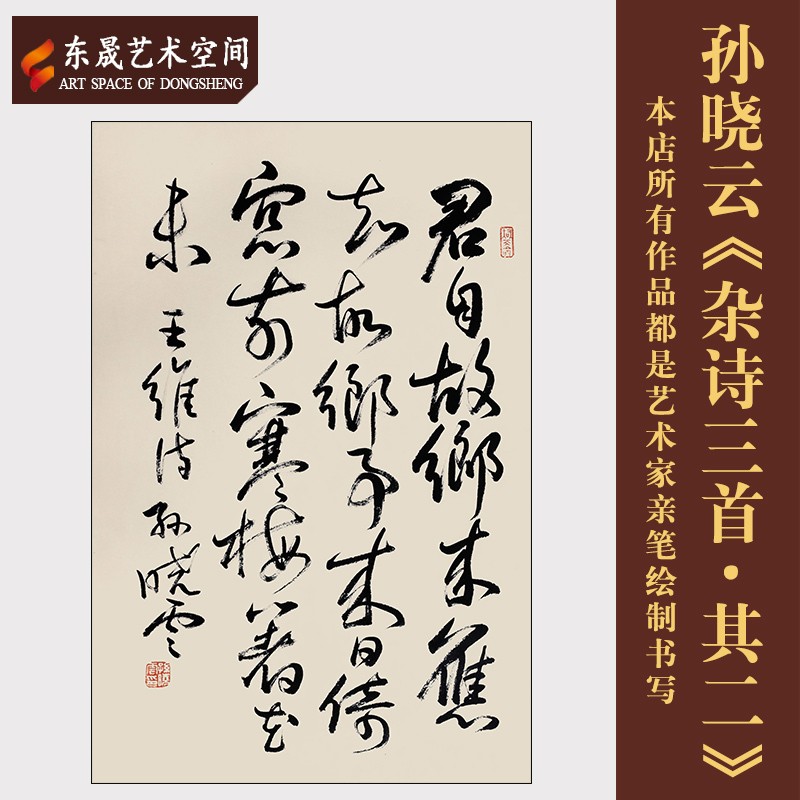 东晟艺术空间
ART SPACE OF DONGSHENG
孙晓云《杂诗三首·其二》
本店所有作品都是艺术家亲笔绘制书写
君自故鄉来應
知故鄉事来日倚
窓前寒梅著花
未 王維诗 孙晓雲